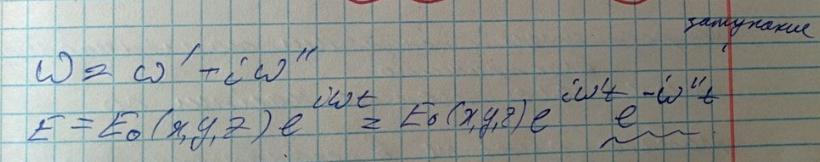 затухание
ω = ω' + iω''
E = E₀(x,y,z) e^{iωt} = E₀(x,y,z) e^{iω't} e^{-ω''t}